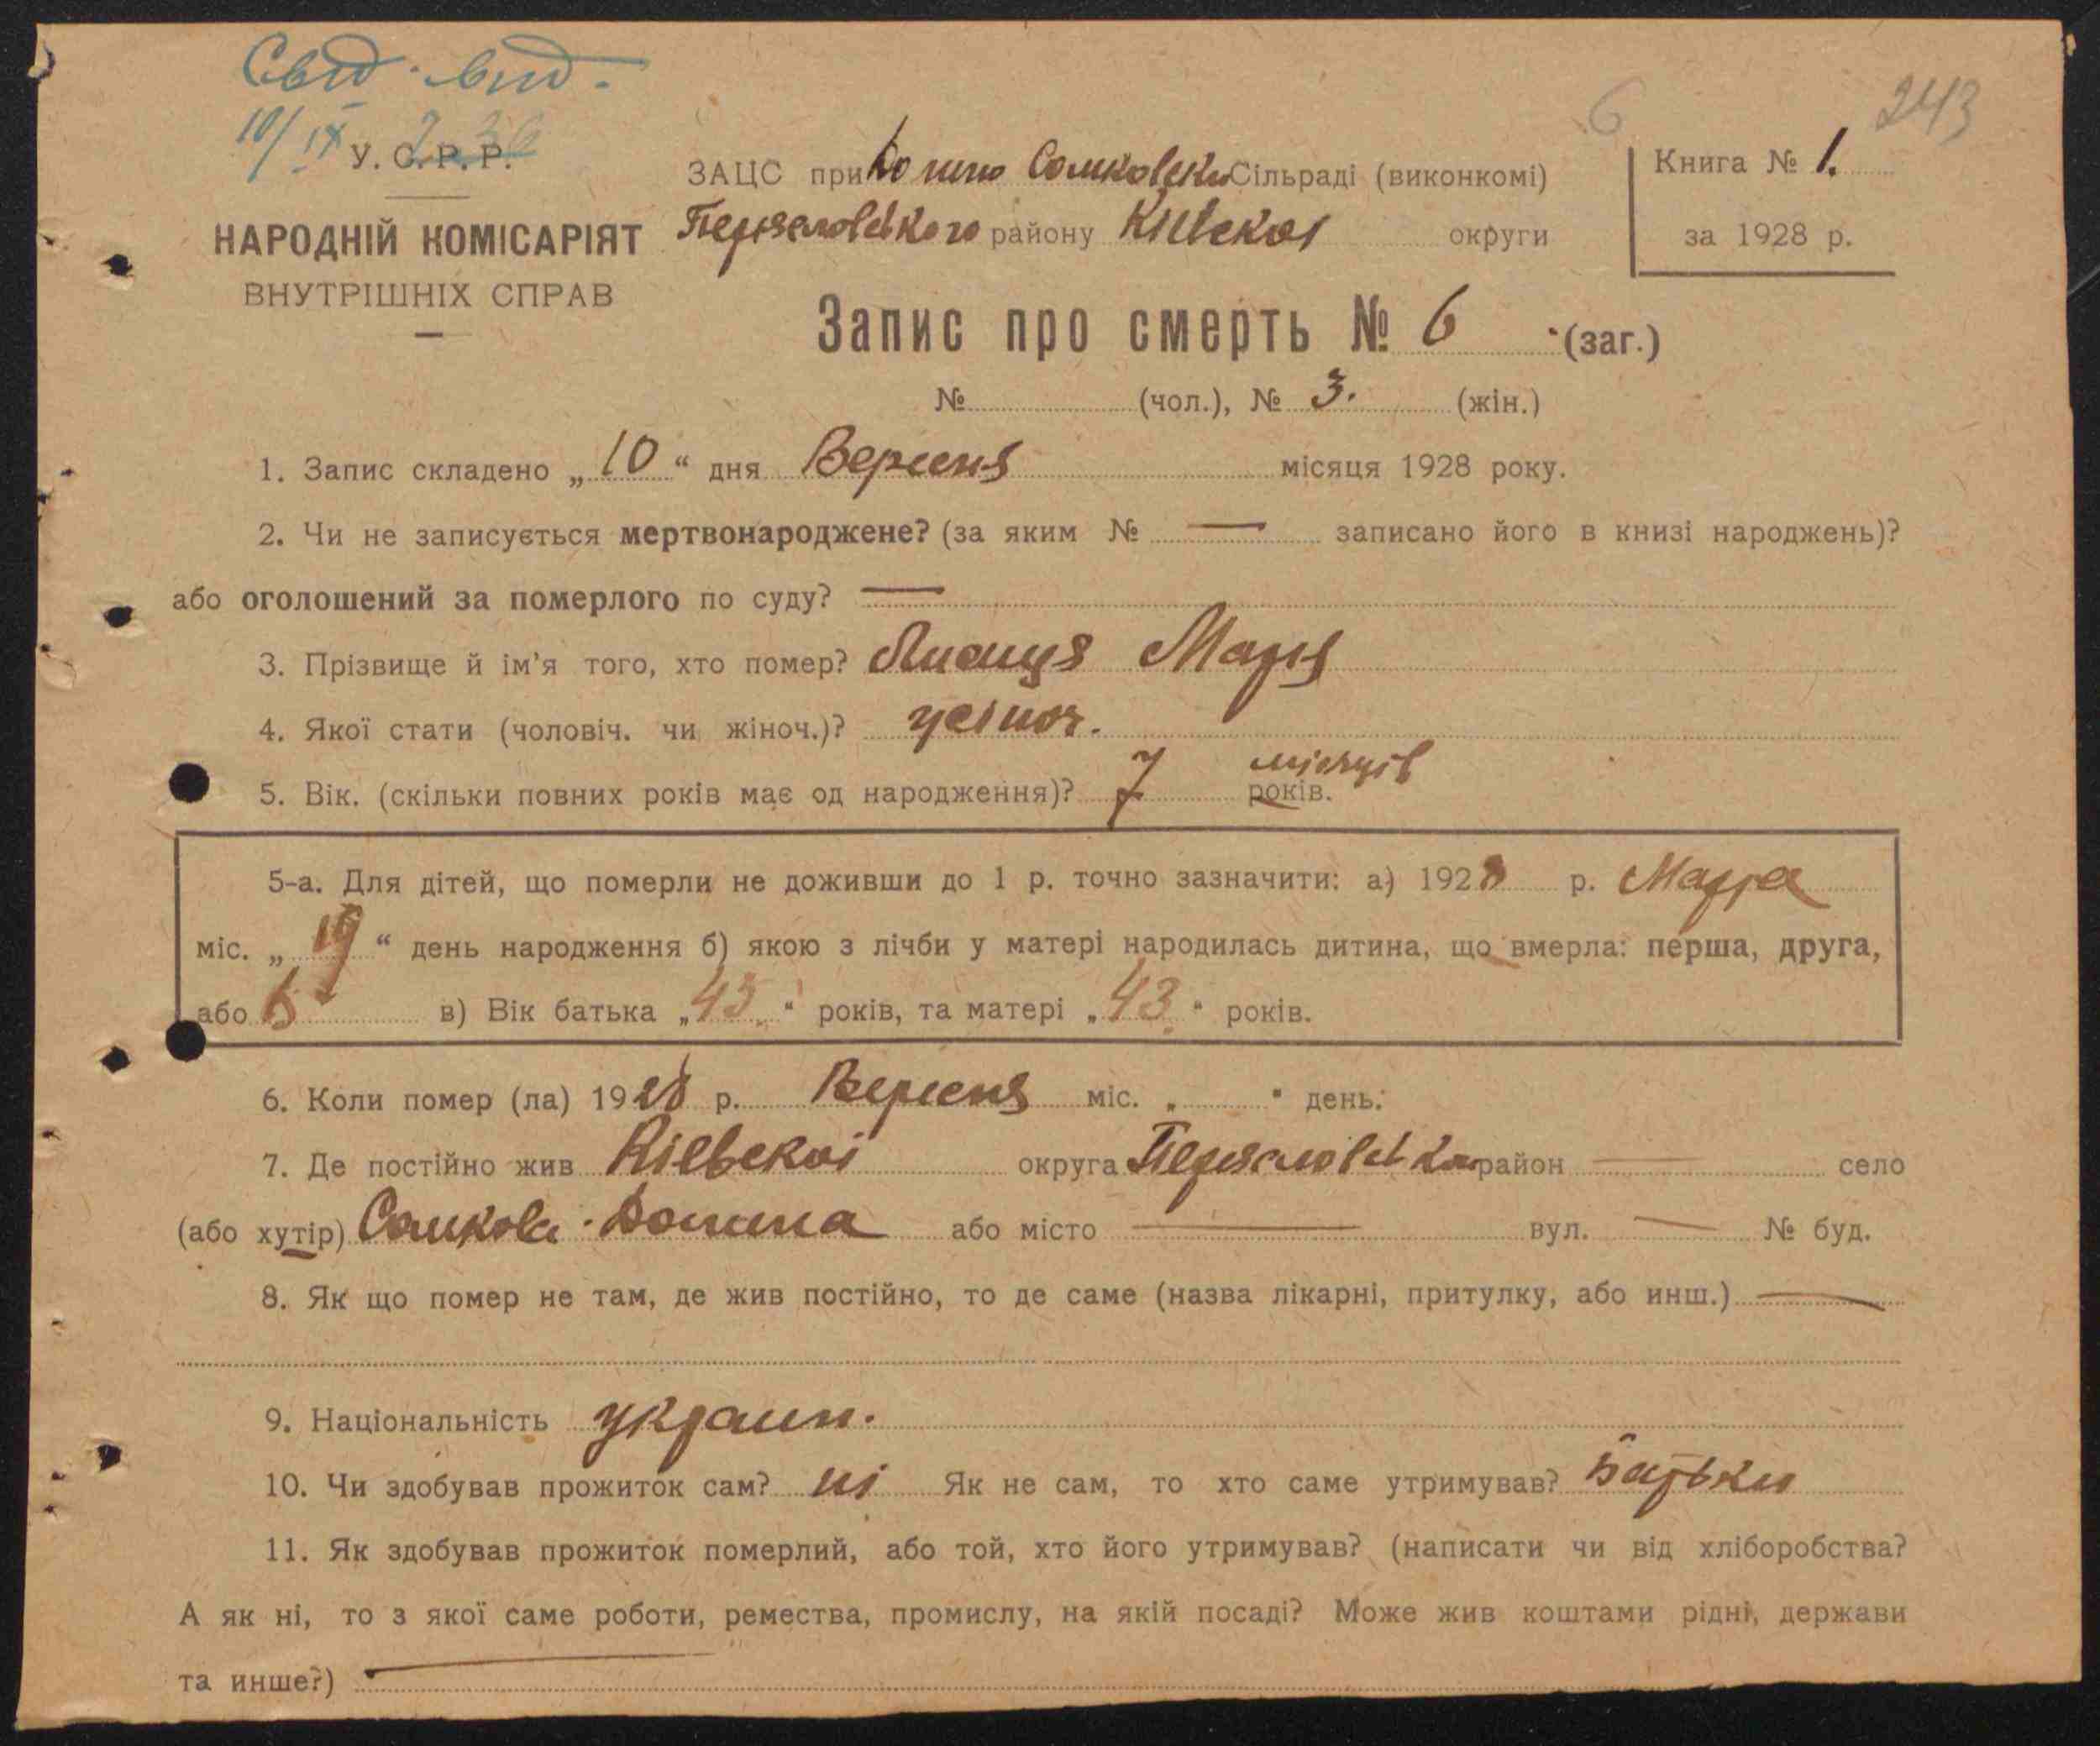 Свід. вид.
10/IX
У. С. Р. Р.
НАРОДНІЙ КОМІСАРІЯТ
ВНУТРІШНІХ СПРАВ
6 243
ЗАЦС при Сомковски Сільраді (виконкомі)
Переяславського району Київскоі округи
Книга № 1.
за 1928 р.
Запис про смерть № 6 (заг.)
№ (чол.), № 3. (жін.)
1. Запис складено „10“ дня Вересня місяця 1928 року.
2. Чи не записується мертвонароджене? (за яким № — записано його в книзі народжень)?
або оголошений за померлого по суду? —
3. Прізвище й ім'я того, хто помер? Марія
4. Якої стати (чоловіч. чи жіноч.)? жіноч.
5. Вік. (скільки повних років має од народження)? 7 місяців років.
5-а. Для дітей, що померли не доживши до 1 р. точно зазначити: а) 1928 р. Марта
міс. „19“ день народження б) якою з лічби у матері народилась дитина, що вмерла: перша, друга,
або в) Вік батька „45“ років, та матері „43“ років.
6. Коли помер (ла) 1928 р. Вересня міс. „ “ день.
7. Де постійно жив Київскоі округа район — село
(або хутір) Сомкова-Долина або місто — вул. — № буд.
8. Як що помер не там, де жив постійно, то де саме (назва лікарні, притулку, або инш.) —
9. Національність украин.
10. Чи здобував прожиток сам? ні Як не сам, то хто саме утримував? Батьки
11. Як здобував прожиток померлий, або той, хто його утримував? (написати чи від хліборобства?
А як ні, то з якої саме роботи, ремества, промислу, на якій посаді? Може жив коштами рідні, держави
та инше?) —